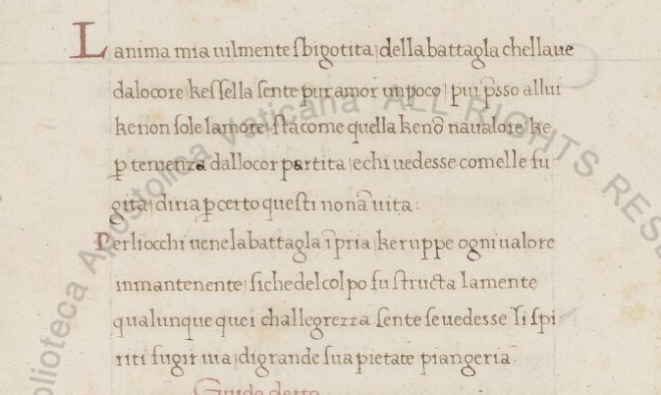 L anima mia uilmente sbigotita | della battagla chellaue
dalocore | kessella sente pur amor un poco | piu p̄sso allui
ke non sole lamore | sta come quella ke nō naualore | ke
ꝑ temenza dallocor partita | echi uedesse comelle fu
gita | diria ꝑ certo questi non ā uita :
Per liocchi uene la battagla ī pria | ke ruppe ogni ualore
inmantenente | si che del colpo fu structa lamente
qualunque quei challegrezza sente se uedesse li spi
riti fugir uia | di grande sua pietate piangeria .
Guido detto
Biblioteca Apostolica Vaticana ALL RIGHTS RESE